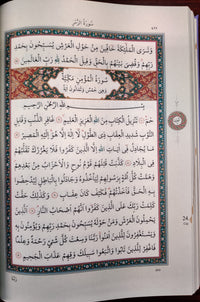 سورة الزمر
وَتَرَى الْمَلَائِكَةَ حَافِّينَ مِنْ حَوْلِ الْعَرْشِ يُسَبِّحُونَ بِحَمْدِ
رَبِّهِمْ وَقُضِيَ بَيْنَهُمْ بِالْحَقِّ وَقِيلَ الْحَمْدُ لِلَّهِ رَبِّ الْعَالَمِينَ
سورة المؤمن مكية
وهي خمس وثمانون آية
بِسْمِ اللَّهِ الرَّحْمَنِ الرَّحِيمِ
حم تَنْزِيلُ الْكِتَابِ مِنَ اللَّهِ الْعَزِيزِ الْعَلِيمِ غَافِرِ الذَّنْبِ وَقَابِلِ
التَّوْبِ شَدِيدِ الْعِقَابِ ذِي الطَّوْلِ لَا إِلَهَ إِلَّا هُوَ إِلَيْهِ الْمَصِيرُ
مَا يُجَادِلُ فِي آيَاتِ اللَّهِ إِلَّا الَّذِينَ كَفَرُوا فَلَا يَغْرُرْكَ تَقَلُّبُهُمْ فِي
الْبِلَادِ كَذَّبَتْ قَبْلَهُمْ قَوْمُ نُوحٍ وَالْأَحْزَابُ مِنْ بَعْدِهِمْ
وَهَمَّتْ كُلُّ أُمَّةٍ بِرَسُولِهِمْ لِيَأْخُذُوهُ وَجَادَلُوا بِالْبَاطِلِ لِيُدْحِضُوا
بِهِ الْحَقَّ فَأَخَذْتُهُمْ فَكَيْفَ كَانَ عِقَابِ وَكَذَلِكَ حَقَّتْ
كَلِمَتُ رَبِّكَ عَلَى الَّذِينَ كَفَرُوا أَنَّهُمْ أَصْحَابُ النَّارِ الَّذِينَ
يَحْمِلُونَ الْعَرْشَ وَمَنْ حَوْلَهُ يُسَبِّحُونَ بِحَمْدِ رَبِّهِمْ وَيُؤْمِنُونَ بِهِ
وَيَسْتَغْفِرُونَ لِلَّذِينَ آمَنُوا رَبَّنَا وَسِعْتَ كُلَّ شَيْءٍ رَحْمَةً وَعِلْمًا
فَاغْفِرْ لِلَّذِينَ تَابُوا وَاتَّبَعُوا سَبِيلَكَ وَقِهِمْ عَذَابَ الْجَحِيمِ
ربنا
24